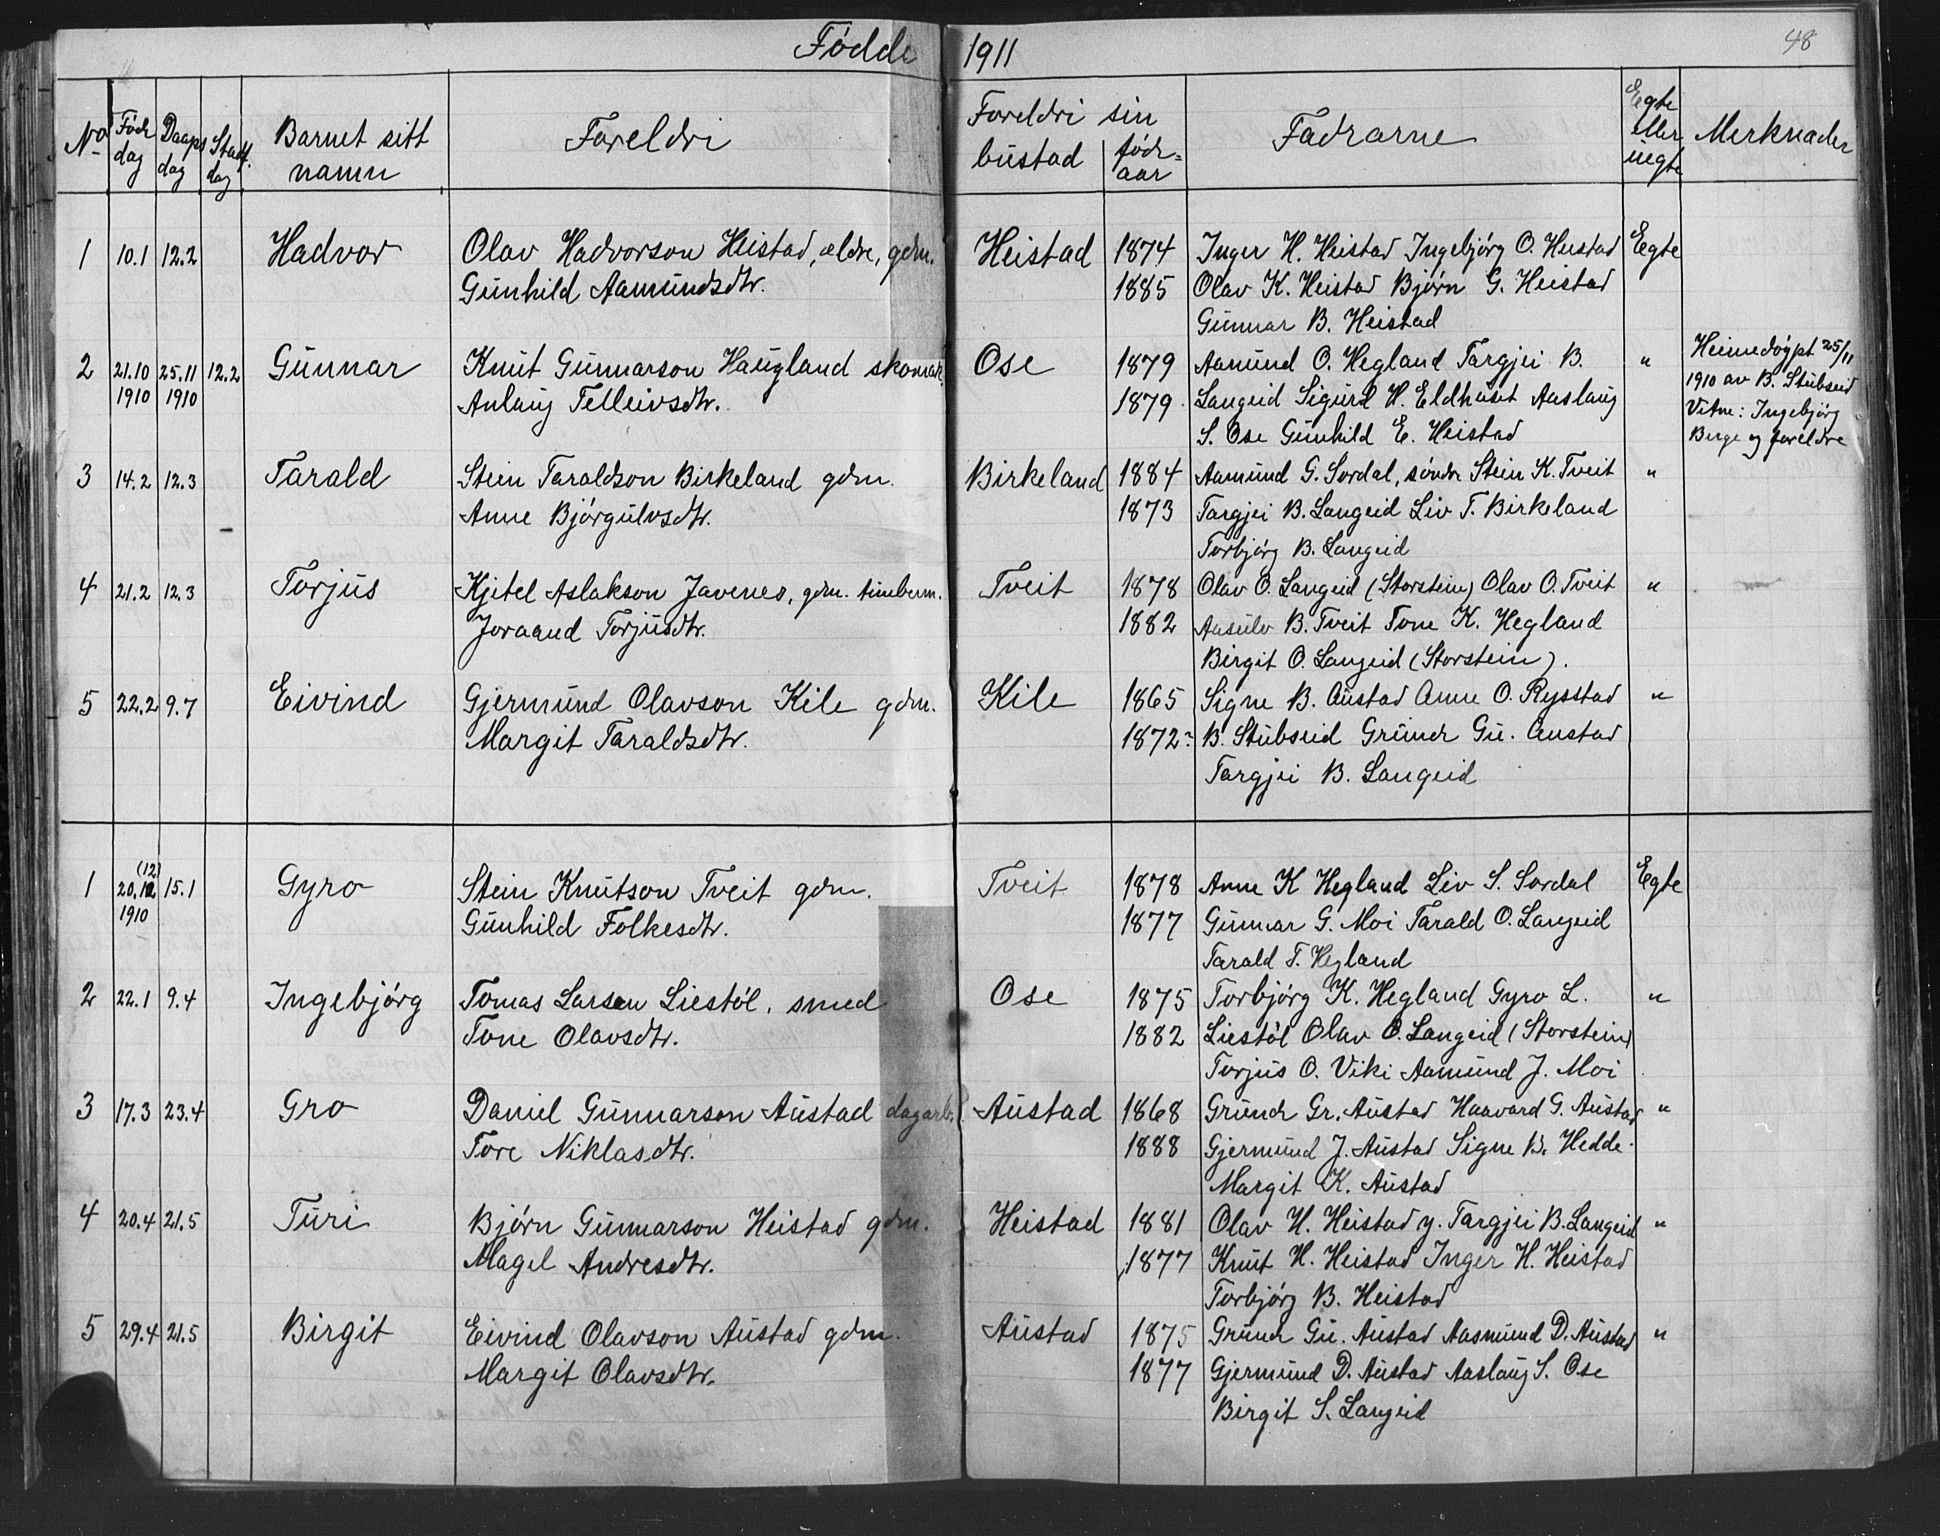 Fødde 1911
48
No Fødedag Daapsdag Stadf. dag Barnet sitt namn Foreldri Foreldri sin bustad fødeaar Fadrarne Egte eller uegte Merknader
1 10.1 12.2 Hadvor Olav Hadvorson Heistad, ældre, gdm. Heistad 1874 Inger H. Heistad Ingebjørg O. Heistad Egte
Gunhild Aamundsdtr. 1885 Olav K. Heistad Bjørn G. Heistad
Gunnar B. Heistad
2 21.10 25.11 12.2 Gunnar Knut Gunnarson Haugland skomak. Ose 1879 Aamund O. Hegland Targjei B. " Heimedøypt 25/11
1910 1910 Anlaug Telleivsdtr. 1879 Langeid Sigurd H. Eldhuset Aaslaug 1910 av B. Stubseid
S. Ose Gunhild E. Heistad Vitne: Ingebjørg
Berge og foreldre
3 14.2 12.3 Tarald Stein Taraldson Birkeland gdm. Birkeland 1884 Aamund G. Sordal, søndre Stein K. Tveit "
Anne Bjørgulvsdtr. 1873 Targjei B. Langeid Liv T. Birkeland
Torbjørg B. Langeid
4 21.2 12.3 Torjus Kjitel Aslakson Javenes, gdm. timberm. Tveit 1878 Olav O. Langeid (Storstein) Olav O. Tveit "
Joraand Torjusdtr. 1882 Aasulv B. Tveit Tone K. Hegland
Birgit O. Langeid (Storstein).
5 22.2 9.7 Eivind Gjermund Olavson Kile gdm. Kile 1865 Signe B. Austad Anne O. Rysstad "
Margit Taraldsdtr. 1872 B. Stubseid Grunde Gu. Austad
Targjei B. Langeid
(12)
1 20.12 15.1 Gyro Stein Knutson Tveit gdm. Tveit 1878 Anne K Hegland Liv S. Sordal Egte
1910 Gunhild Folkesdtr. 1877 Gunnar G. Moi Tarald O. Langeid
Tarald T. Hegland
2 22.1 9.4 Ingebjørg Tomas Larsen Liestøl, smed Ose 1875 Torbjørg K. Hegland Gyro L. "
Tone Olavsdtr. 1882 Liestøl Olav O. Langeid (Storstein)
Torjus O. Viki Aamund J. Moi
3 17.3 23.4 Gro Daniel Gunnarson Austad dagarb. Austad 1868 Grunde Gr. Austad Haavard G. Austad "
Tore Niklasdtr. 1888 Gjermund J. Austad Signe B. Hedde.
Margit K. Austad
4 20.4 21.5 Turi Bjørn Gunnarson Heistad gdm. Heistad 1881 Olav H. Heistad y. Targjei B. Langeid "
Magel Andresdtr. 1877 Knut H. Heistad Inger H. Heistad
Torbjørg B. Heistad
5 29.4 21.5 Birgit Eivind Olavson Austad gdm. Austad 1875 Grunde Gu. Austad Aasmund D. Austad "
Margit Olavsdtr. 1877 Gjermund D. Austad Aaslaug S. Ose
Birgit S. Langeid